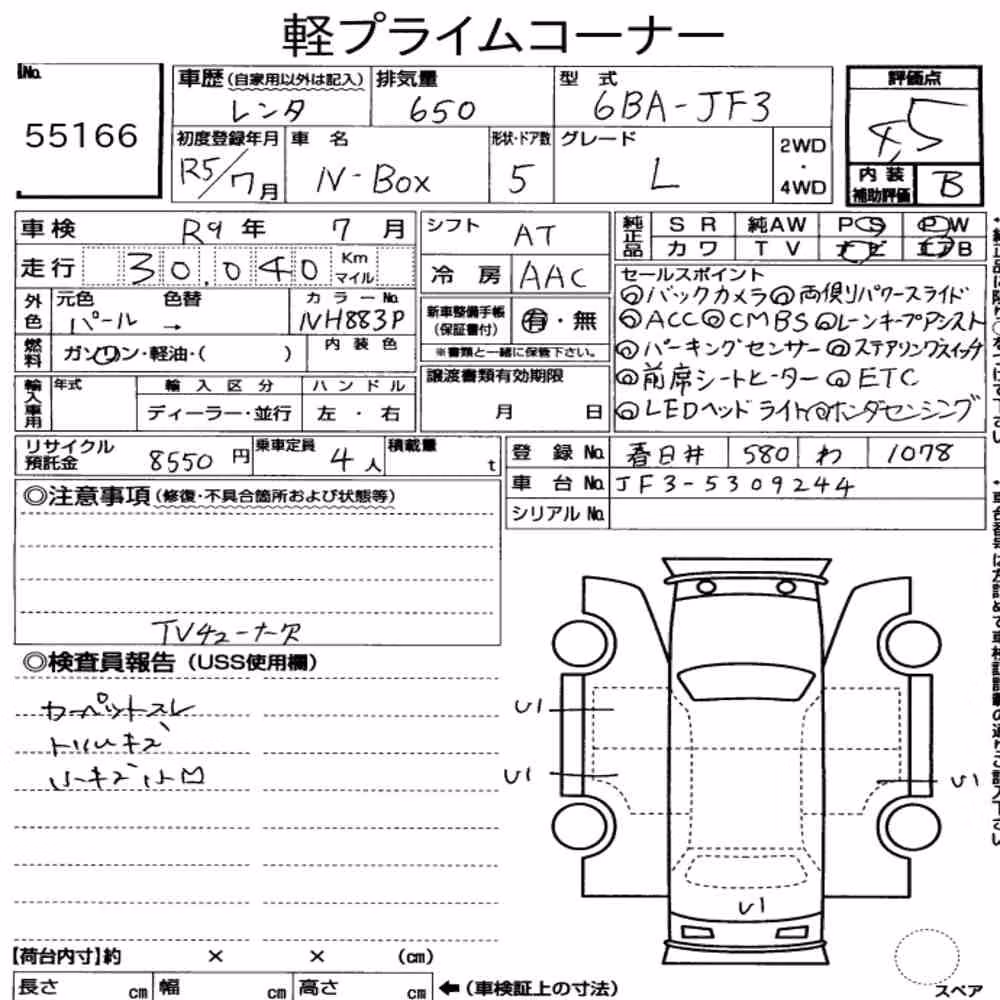 軽プライムコーナー
No. 55166
車歴(自家用以外は記入) レンタ
排気量 650
型式 6BA-JF3
評価点 4.5
初度登録年月 R5/7月
車名 N-Box
形状・ドア数 5
グレード L
2WD・4WD
内装補助評価 B
車検 R9年 7月
シフト AT
純正品 SR 純AW PS PW
カワ TV ナビ エアB
走行 30,040 Km マイル
冷房 AAC
外色 元色 パール → 色替
カラーNo. NH883P
新車整備手帳(保証書付) 有・無
※書類と一緒に保管下さい。
燃料 ガソリン・軽油・( )
内装色
セールスポイント
◎バックカメラ◎両側りパワースライド
◎ACC◎CMBS◎レーンキープアシスト
◎パーキングセンサー◎ステアリングスイッチ
◎前席シートヒーター◎ETC
◎LEDヘッドライト◎ホンダセンシング
輸入車用 年式 輸入区分 ハンドル
ディーラー・並行 左・右
譲渡書類有効期限
月 日
リサイクル預託金 8550円
乗車定員 4人
積載量 t
登録No. 春日井 580 わ 1078
車台No. JF3-5309244
シリアルNo.
◎注意事項(修復・不具合箇所および状態等)
TVチューナー欠
◎検査員報告(USS使用欄)
カーペットスレ
トリムキズ
リーキズ小凹
U1
U1
U1
U1
【荷台内寸】約 × × (cm)
長さ cm 幅 cm 高さ cm ←(車検証上の寸法)
スペア